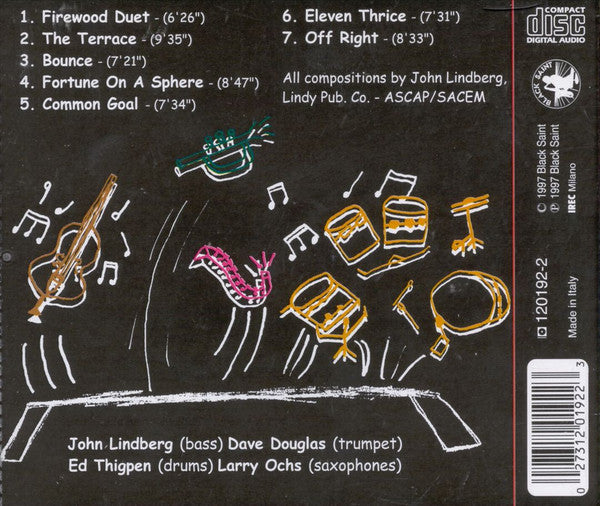 1. Firewood Duet - (6'26")
2. The Terrace - (9'35")
3. Bounce - (7'21")
4. Fortune On A Sphere - (8'47")
5. Common Goal - (7'34")
6. Eleven Thrice - (7'31")
7. Off Right - (8'33")
All compositions by John Lindberg,
Lindy Pub. Co. - ASCAP/SACEM
COMPACT
disc
DIGITAL AUDIO
BLACK SAINT
© 1997 Black Saint
℗ 1997 Black Saint
IREC Milano
120192-2
Made in Italy
0 27312 01922 3
John Lindberg (bass) Dave Douglas (trumpet)
Ed Thigpen (drums) Larry Ochs (saxophones)